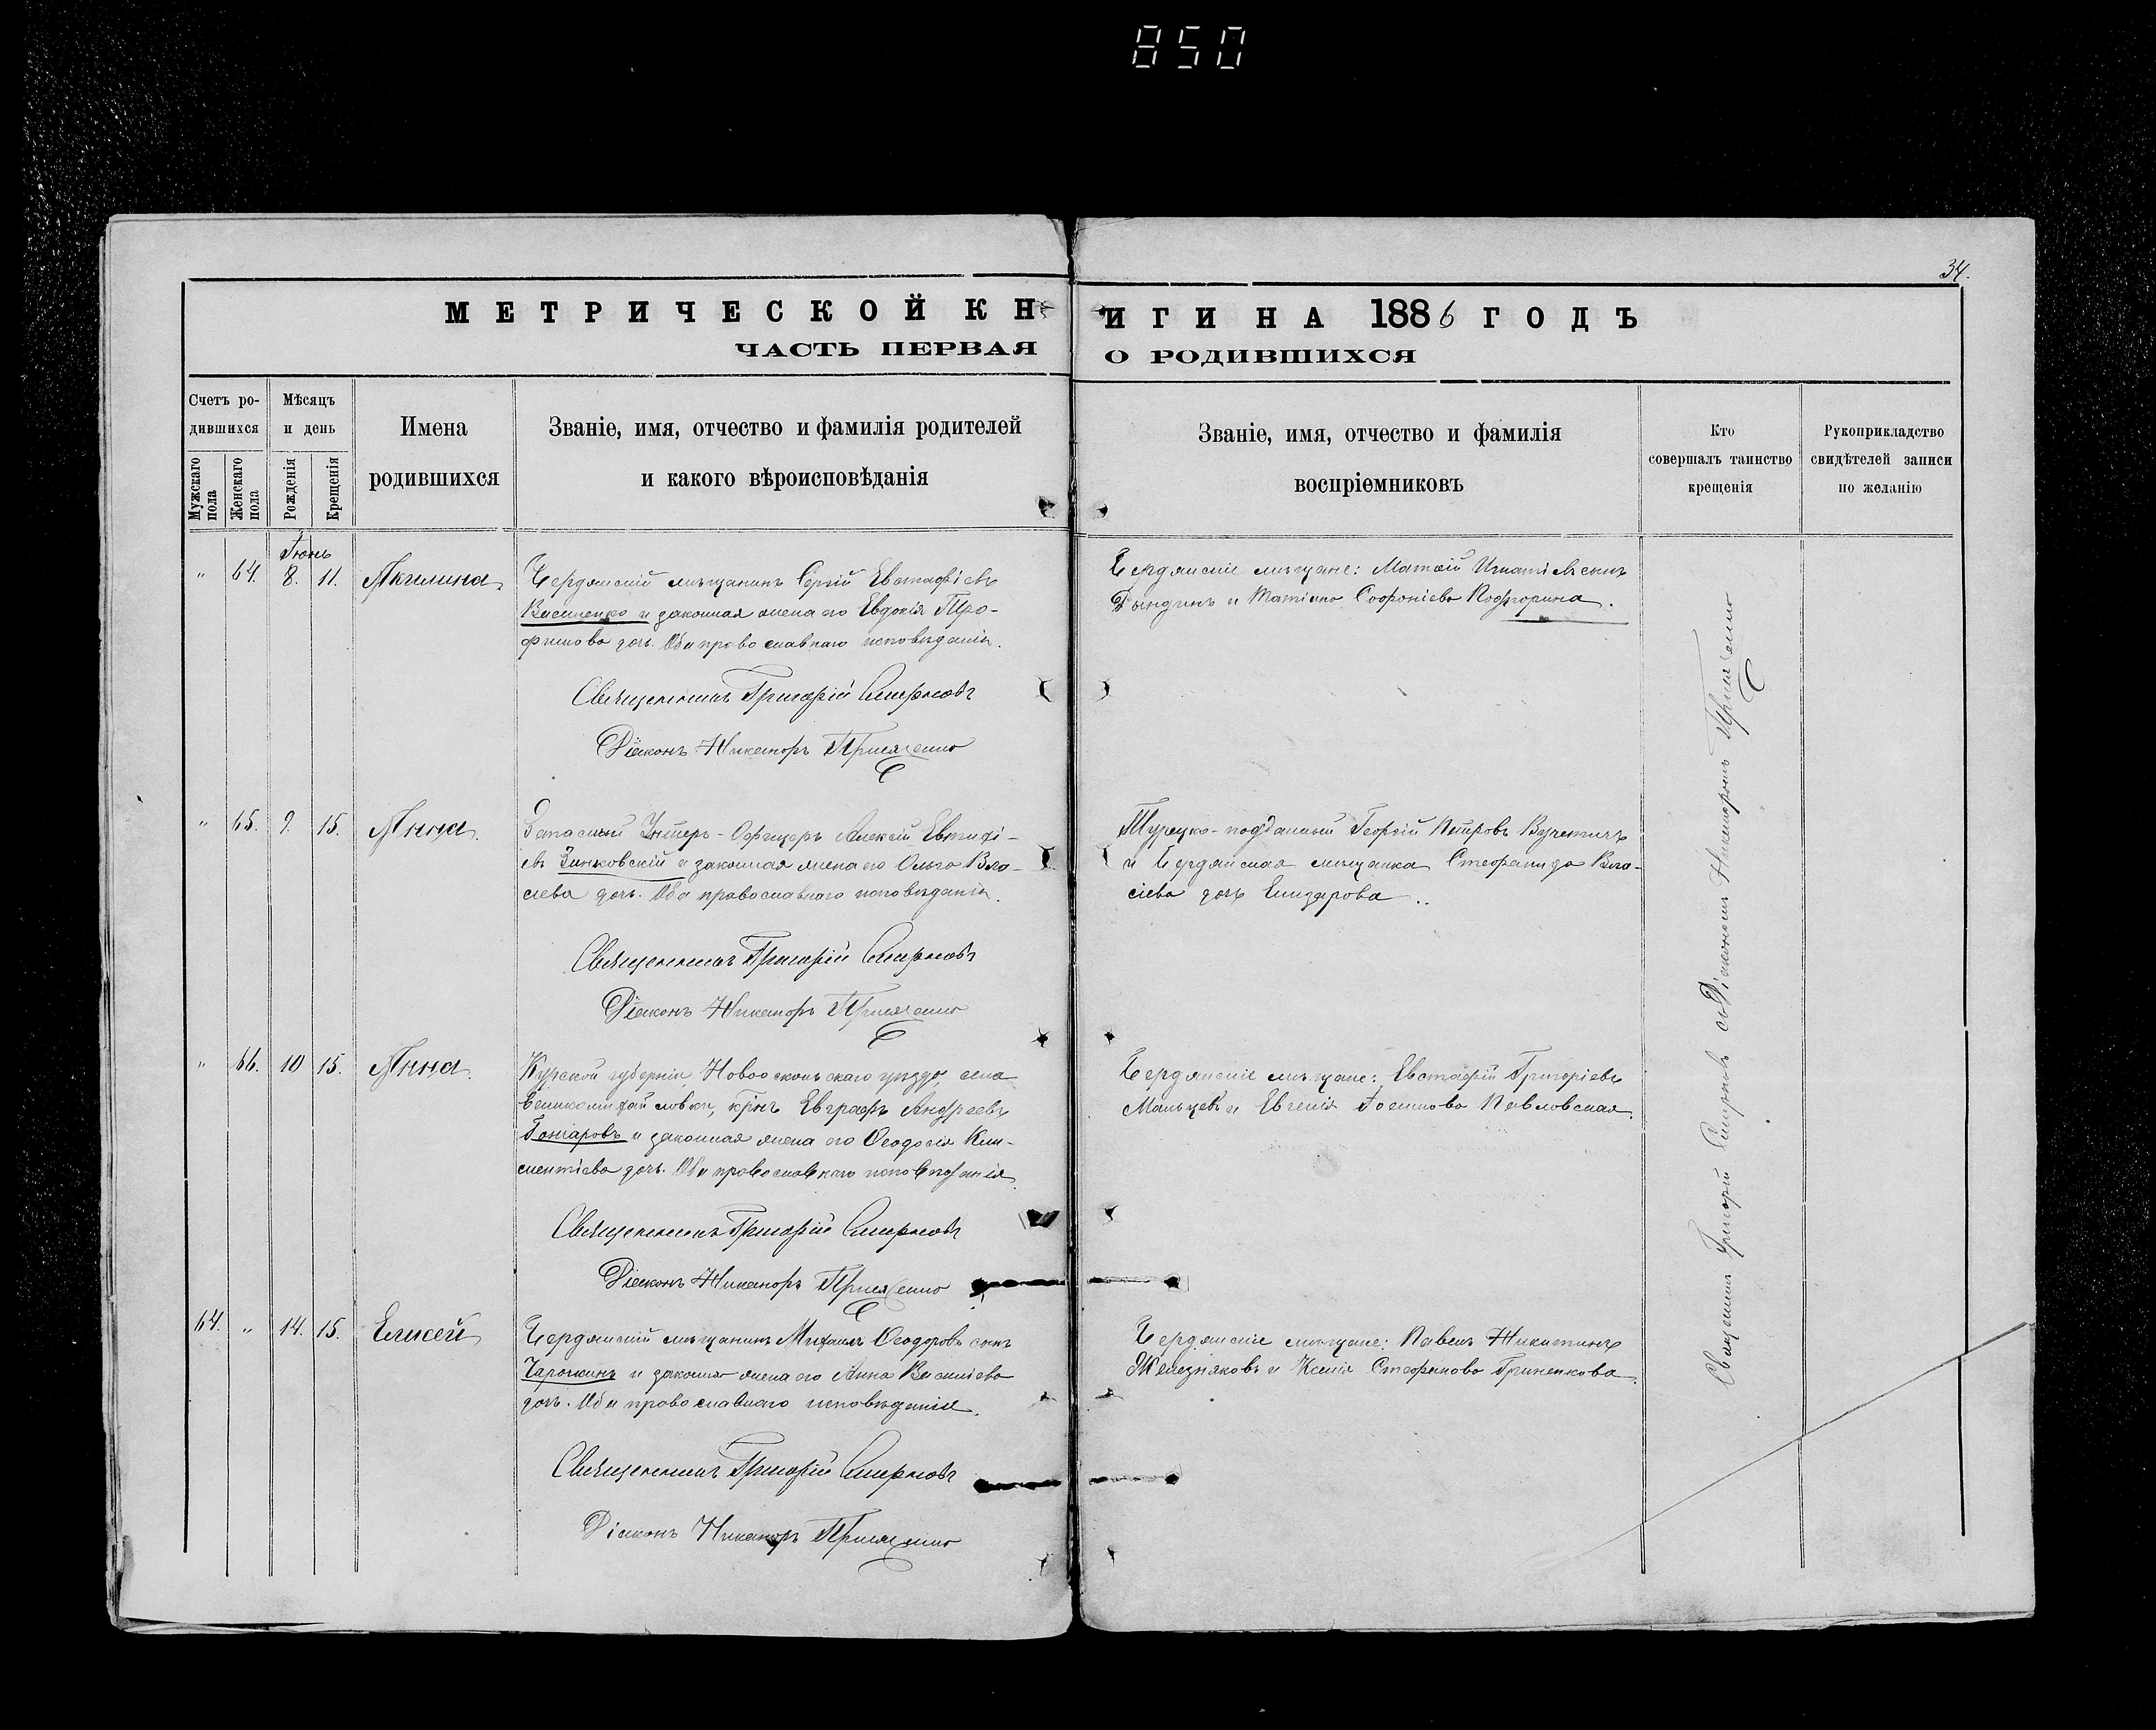 850
34.
МЕТРИЧЕСКОЙ КНИГИ НА 1886 ГОДЪ
ЧАСТЬ ПЕРВАЯ О РОДИВШИХСЯ
Счетъ ро-
дившихся
Мужскаго пола
Женскаго пола
Мѣсяцъ
и день
Рожденія
Крещенія
Имена
родившихся
Званіе, имя, отчество и фамилія родителей
и какого вѣроисповѣданія
Званіе, имя, отчество и фамилія
воспріемниковъ
Кто
совершалъ таинство
крещенія
Рукоприкладство
свидѣтелей записи
по желанію
Іюнь
" 64. 8. 11. Акилина.
Бердянскій мѣщанинъ Сергій Евстафіевъ
Василенко и законная жена его Евдокія Тро-
фимова дочь. Оба православнаго исповѣданія.
Священникъ Григорій Смирновъ
Діаконъ Никаноръ
Бердянскіе мѣщане: Матѳій Игнатіевъ сынъ
Дындинъ и Татіана Софоніева
" 65. 9. 15. Анна.
Запасный Унтеръ-Офицеръ Алексій Евтихі-
евъ Зинковскій и законная жена его Ольга Вла-
сіева дочь. Оба православнаго исповѣданія.
Священникъ Григорій Смирновъ
Діаконъ Никаноръ
Турецко-подданный Георгій Петровъ Вучетичъ
и Бердянская мѣщанка Стефанида Вла-
сіева дочь
" 66. 10 15. Анна.
Курской губерніи, Новооскольскаго уѣзда, села
Великомихайловки, крнъ Евграфъ Андреевъ
Гончаровъ и законная жена его Ѳеодосія Кли-
ментіева дочь. Оба православнаго исповѣданія.
Священникъ Григорій Смирновъ
Діаконъ Никаноръ
Бердянскіе мѣщане: Евстафій Григоріевъ
Мальцевъ и Евгенія Іоакимова Павловская.
64. " 14. 15. Елисей
Бердянскій мѣщанинъ Михаилъ Ѳеодоровъ сынъ
и законная жена его Анна Василіева
дочь. Оба православнаго исповѣданія.
Священникъ Григорій Смирновъ
Діаконъ Никаноръ
Бердянскіе мѣщане: Павелъ Никитинъ
Желѣзняковъ и Ксенія Стефанова Гриненкова.
Священникъ Григорій Смирновъ съ Діакономъ Никаноромъ